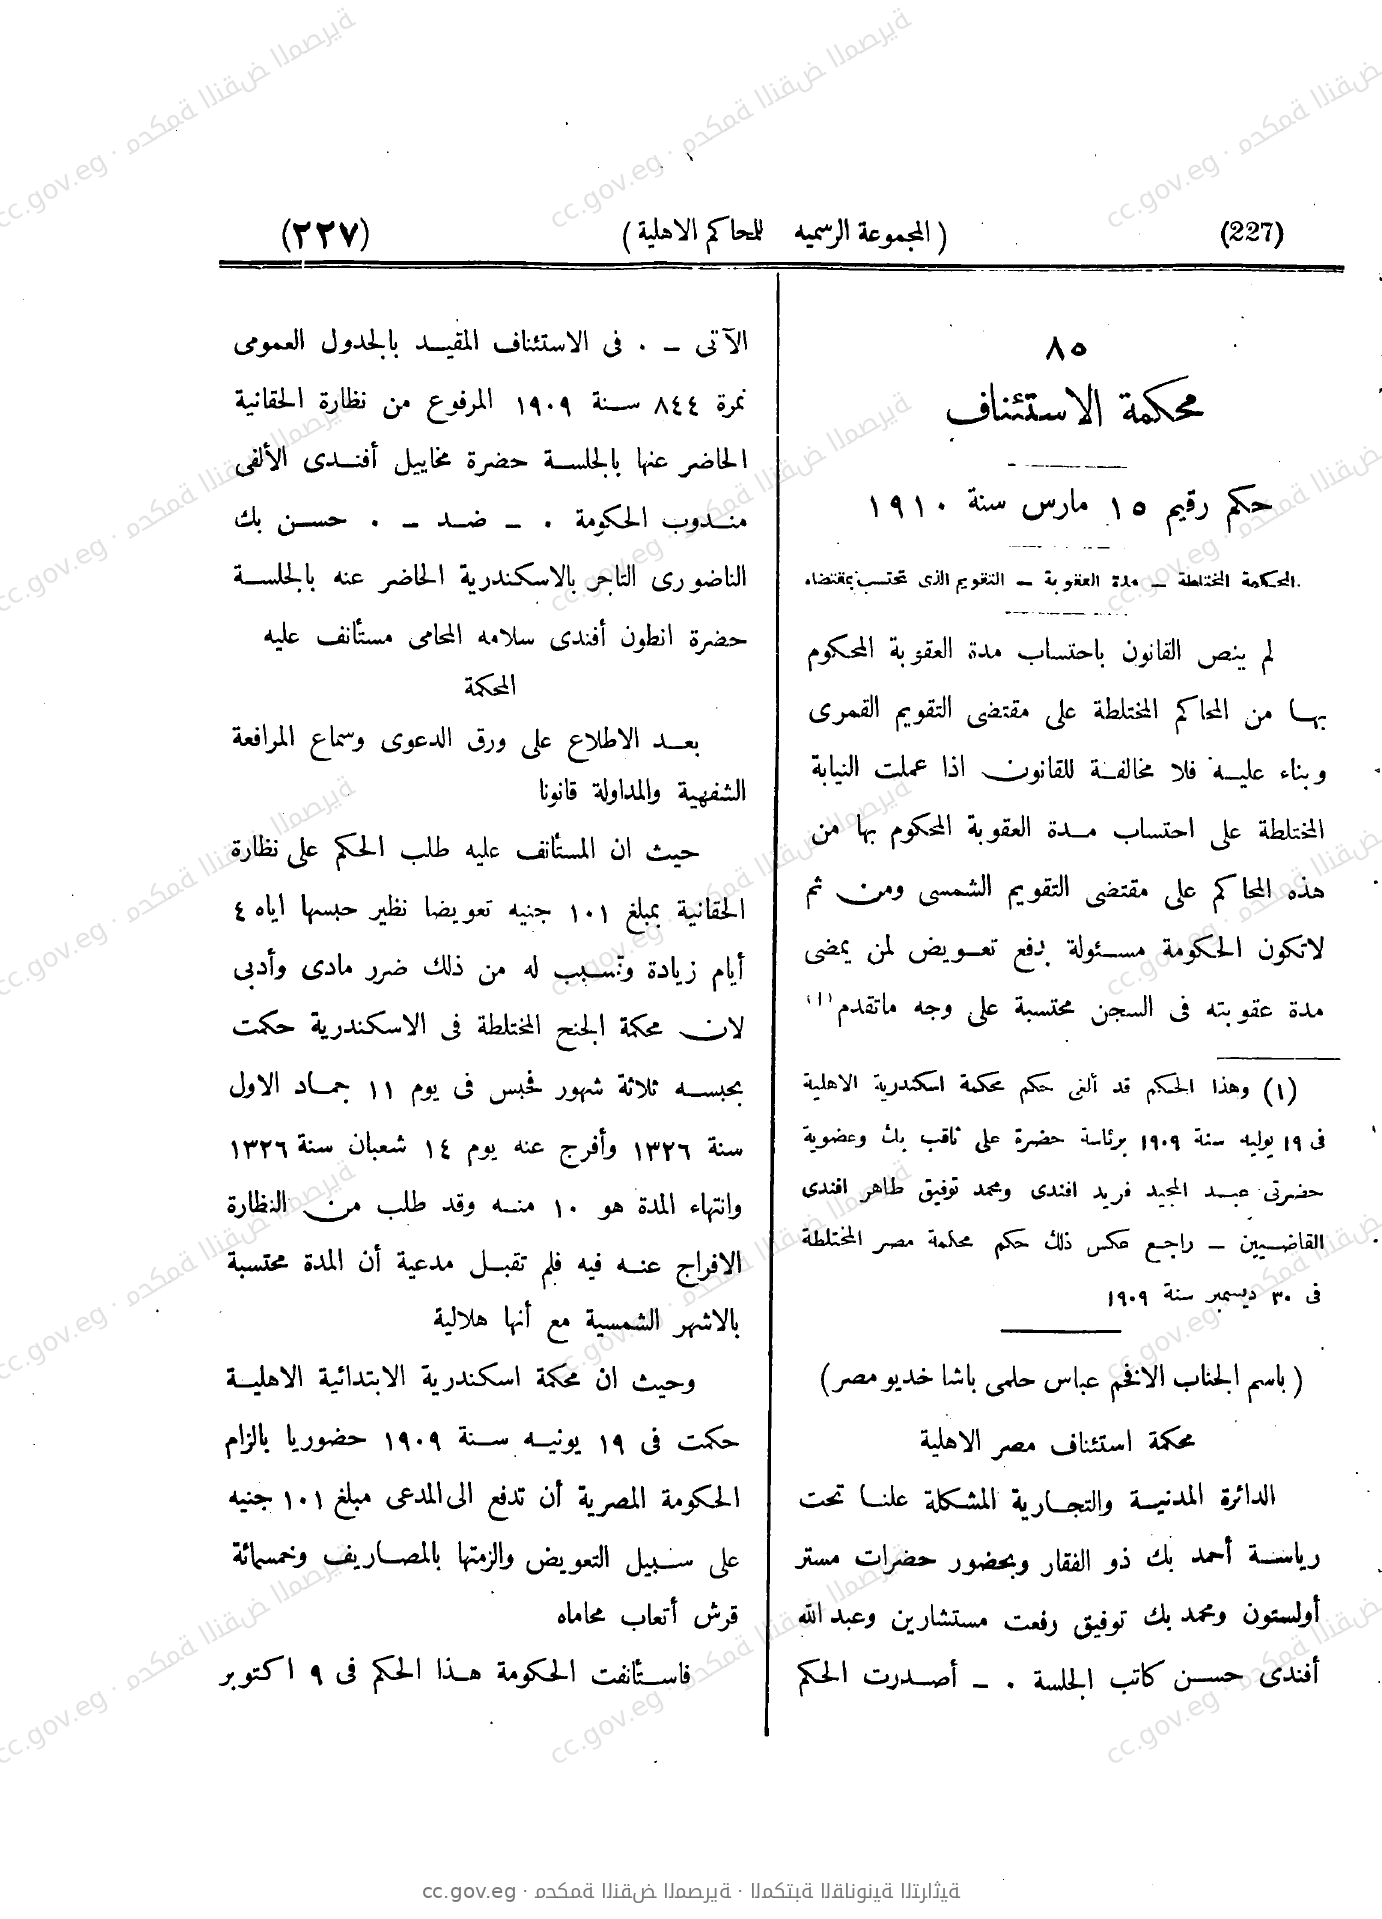 (227) ( المجموعة الرسميه للمحاكم الاهلية ) (٢٢٧)
٨٥
محكمة الاستئناف
حكم رقيم ١٥ مارس سنة ١٩١٠
المحكمة المختلطة – مدة العقوبة – التقويم الذى تحتسب بمقتضاه.
لم ينص القانون باحتساب مدة العقوبة المحكوم
بها من المحاكم المختلطة على مقتضى التقويم القمرى
وبناء عليه فلا مخالفة للقانون اذا عملت النيابة
المختلطة على احتساب مدة العقوبة المحكوم بها من
هذه المحاكم على مقتضى التقويم الشمسى ومن ثم
لاتكون الحكومة مسئولة بدفع تعويض لمن يمضى
مدة عقوبته فى السجن محتسبة على وجه ماتقدم (١)
(١) وهذا الحكم قد ألغى حكم محكمة اسكندرية الاهلية
فى ١٩ يوليه سنة ١٩٠٩ برئاسة حضرة على ثاقب بك وعضوية
حضرتى عبد المجيد فريد افندى ومحمد توفيق طاهر افندى
القاضيين – راجع عكس ذلك حكم محكمة مصر المختلطة
فى ٣٠ ديسمبر سنة ١٩٠٩
( باسم الجناب الافخم عباس حلمى باشا خديو مصر )
محكمة استئناف مصر الاهلية
الدائرة المدنية والتجارية المشكلة علنا تحت
رياسة أحمد بك ذو الفقار وبحضور حضرات مستر
أولستون ومحمد بك توفيق رفعت مستشارين وعبد الله
أفندى حسن كاتب الجلسة . – أصدرت الحكم
الآتى – . فى الاستئناف المقيد بالجدول العمومى
نمرة ٨٤٤ سنة ١٩٠٩ المرفوع من نظارة الحقانية
الحاضر عنها بالجلسة حضرة مخاييل أفندى الألفى
مندوب الحكومة . – ضد – . حسن بك
الناضورى التاجر بالاسكندرية الحاضر عنه بالجلسة
حضرة انطون أفندى سلامه المحامى مستأنف عليه
المحكمة
بعد الاطلاع على ورق الدعوى وسماع المرافعة
الشفهية والمداولة قانونا
حيث ان المستأنف عليه طلب الحكم على نظارة
الحقانية بمبلغ ١٠١ جنيه تعويضا نظير حبسها اياه ٤
أيام زيادة وتسبب له من ذلك ضرر مادى وأدبى
لان محكمة الجنح المختلطة فى الاسكندرية حكمت
بحبسه ثلاثة شهور فحبس فى يوم ١١ جماد الاول
سنة ١٣٢٦ وأفرج عنه يوم ١٤ شعبان سنة ١٣٢٦
وانتهاء المدة هو ١٠ منه وقد طلب من النظارة
الافراج عنه فيه فلم تقبل مدعية أن المدة محتسبة
بالاشهر الشمسية مع أنها هلالية
وحيث ان محكمة اسكندرية الابتدائية الاهلية
حكمت فى ١٩ يونيه سنة ١٩٠٩ حضوريا بالزام
الحكومة المصرية أن تدفع الى المدعى مبلغ ١٠١ جنيه
على سبيل التعويض والزمتها بالمصاريف وخمسمائة
قرش أتعاب محاماه
فاستأنفت الحكومة هذا الحكم فى ٩ اكتوبر
cc.gov.eg · محكمة النقض المصرية · المكتبة القانونية التراثية